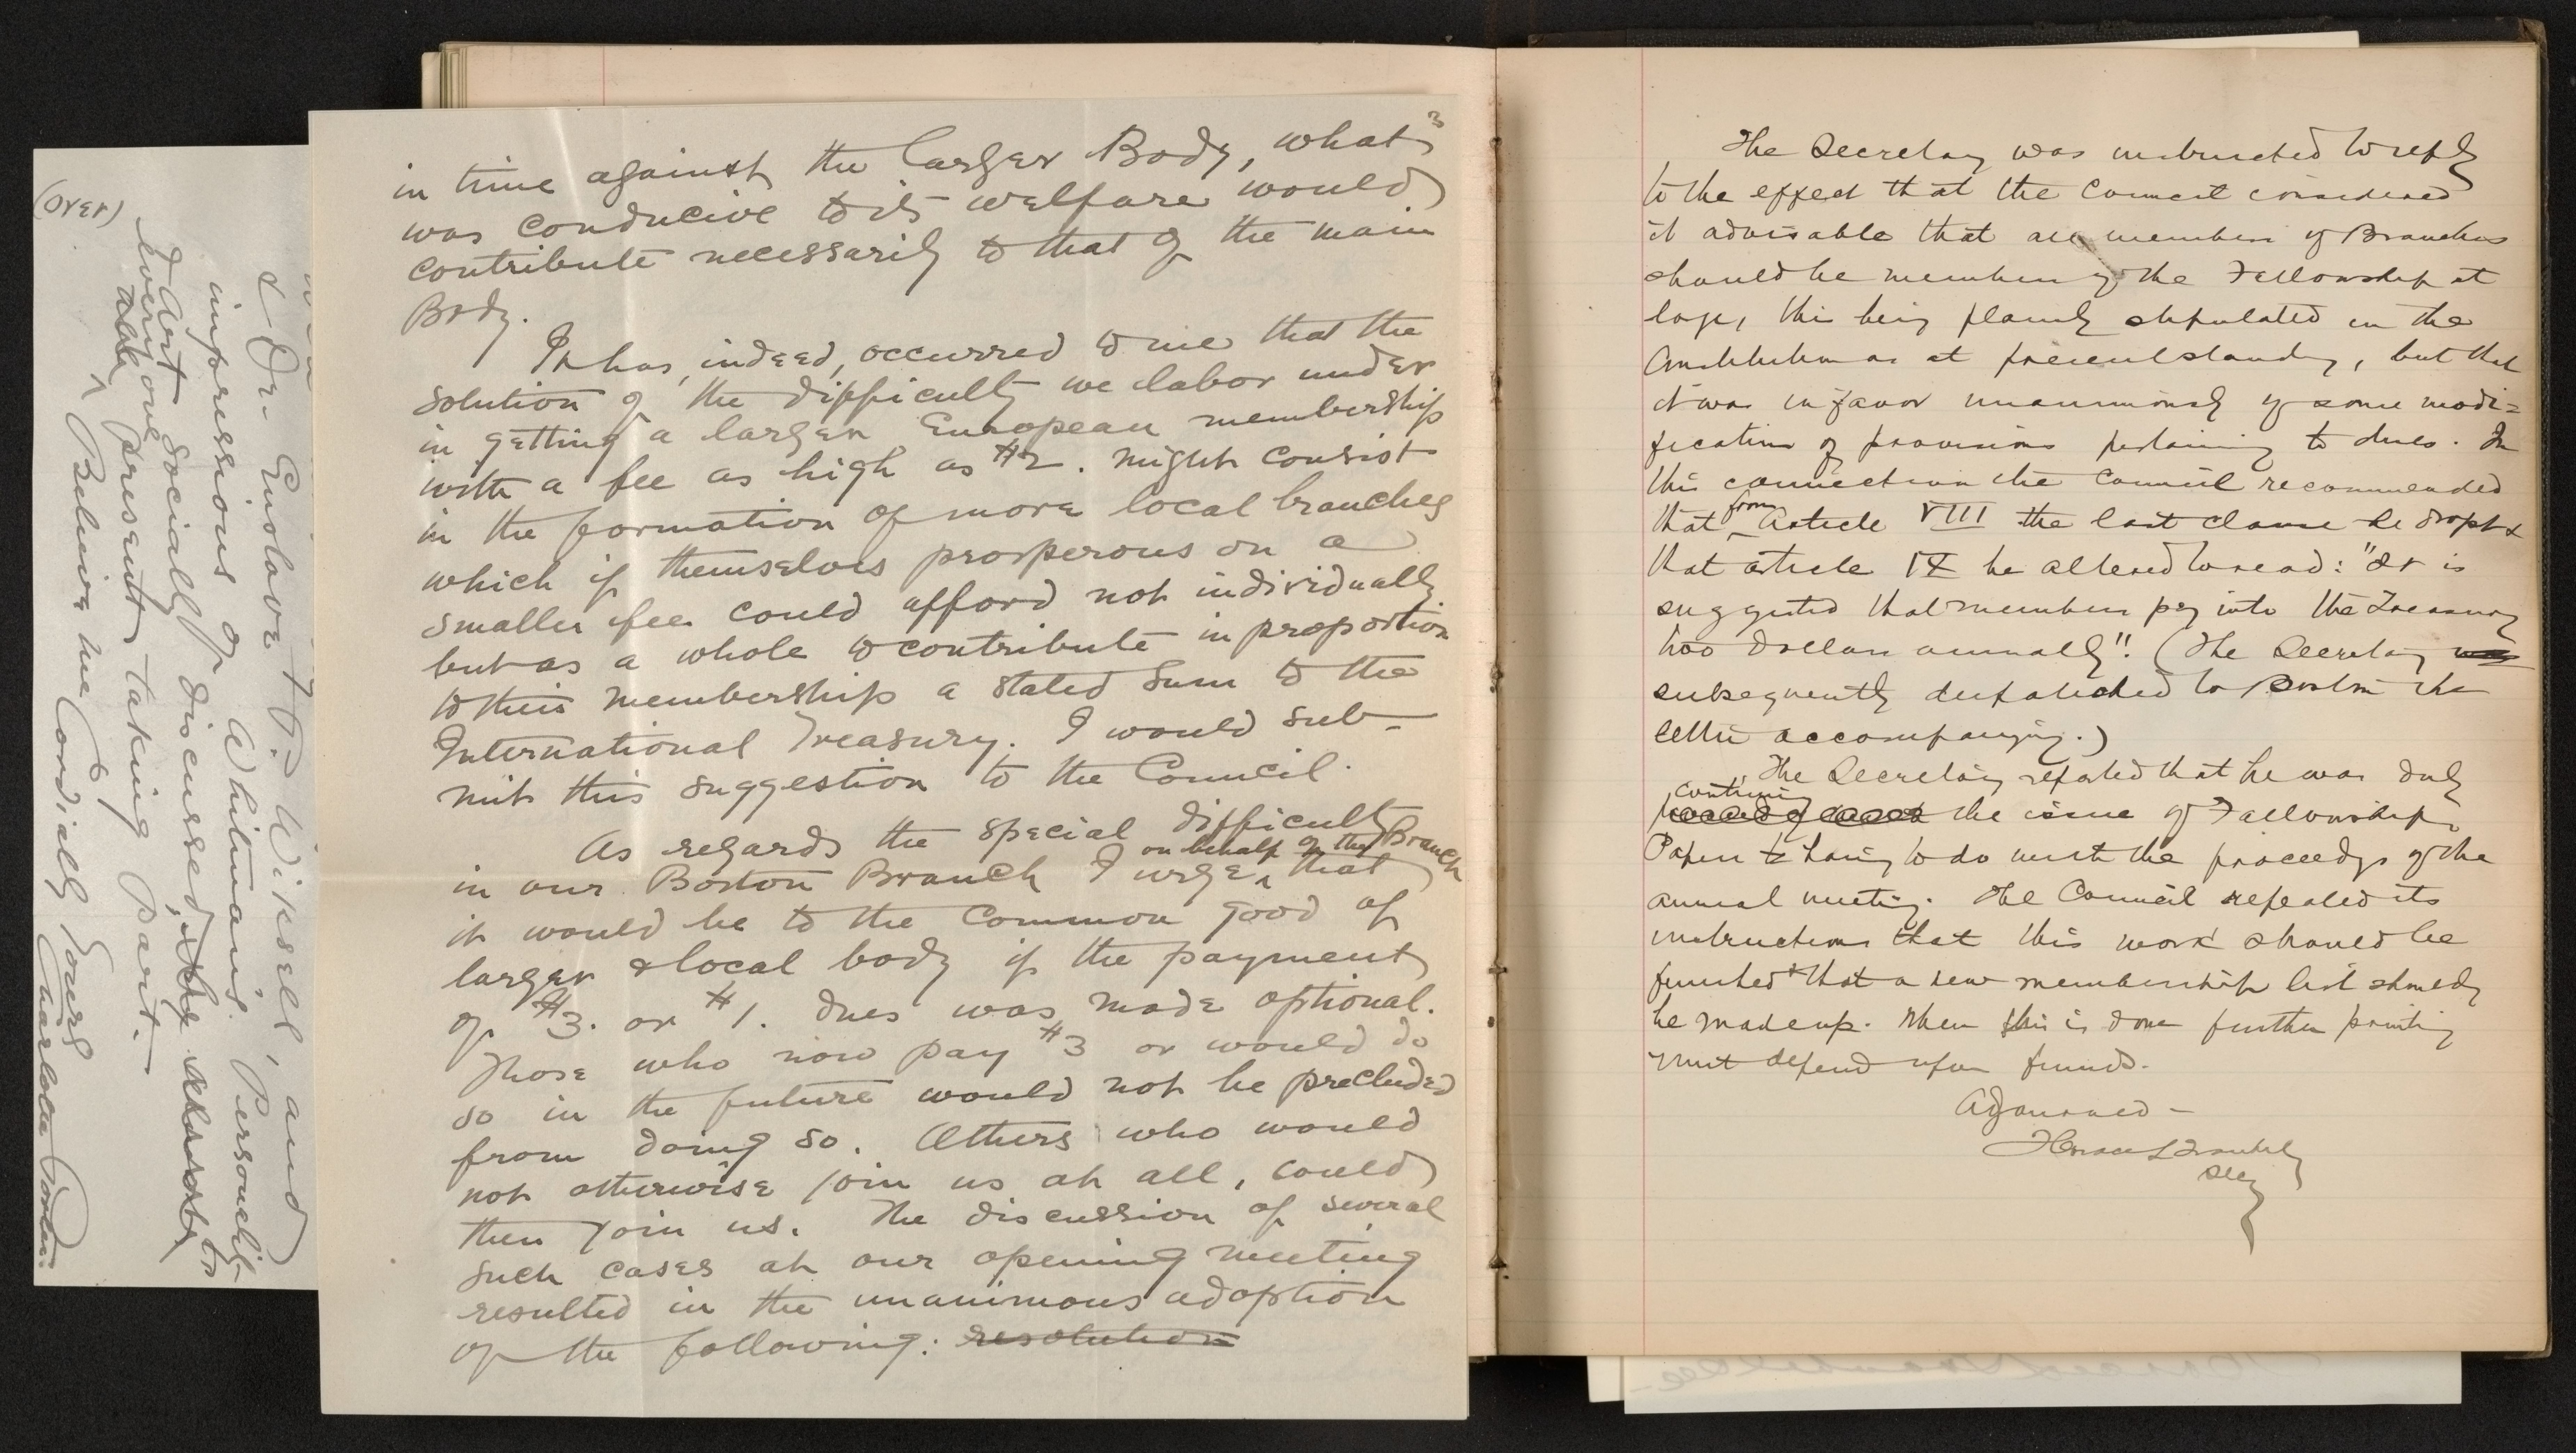 (over)
& Dr. Gustave F. P. Wiksell, and
impressions of Whitman's Personality
& art socially discussed, the almost to
every one present taking part.
Believe me Cordially Yours
Charlotte Porter.
3
in time against the larger Body, what
was conducive to its welfare would
contribute necessarily to that of the main
Body.
It has, indeed, occurred to me that the
solution of the difficulty we labor under
in getting a larger European membership
with a fee as high as $2. might consist
in the formation of more local branches
which if themselves prosperous on a
smaller fee could afford not individually
but as a whole to contribute in proportion
to their membership a stated sum to the
International Treasury. I would sub-
mit this suggestion to the Council.
As regards the special difficulty
in our Boston Branch I urge ‸ on behalf of this Branch that
it would be to the common good of
larger & local body if the payment
of $3. or $1. dues was made optional.
Those who now pay $3 or would do
so in the future would not be precluded
from doing so. Others who would
not otherwise join us at all, could
then join us. The discussion of several
such cases at our opening meeting
resulted in the unanimous adoption
of the following: resolution
The Secretary was instructed to reply
to the effect that the Council considered
it advisable that all members of Branches
should be members of the Fellowship at
large, this being plainly stipulated in the
Constitution as at present standing, but that
it was in favor unanimously of some modi=
fications of provisions pertaining to dues. In
this connection the Council recommended
that ‸ from Article VIII the last clause be dropt &
that article IX be altered to read: "It is
suggested that members pay into the Treasury
two dollars annually". (The Secretary was
subsequently despatched to Boston the
letter accompanying.)
The Secretary reported that he was duly
continuing the issue of Fellowship
Papers to having to do with the proceedgs of the
annual meeting. The Council repeated its
instructions that this work should be
finished & that a new membership list should
be made up. When this is done further printing
must depend upon funds.
Adjourned —
Horace L Traubel
Secy